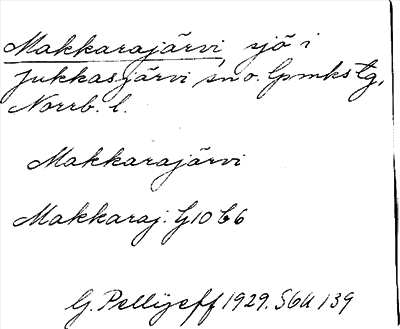 Makkarajärvi, sjö i
Jukkasjärvi sn o. lpmkstg,
Norrb. l.
Makkarajärvi
Makkaraj. G10 b6
G. Pellijeff 1929. SGU 139